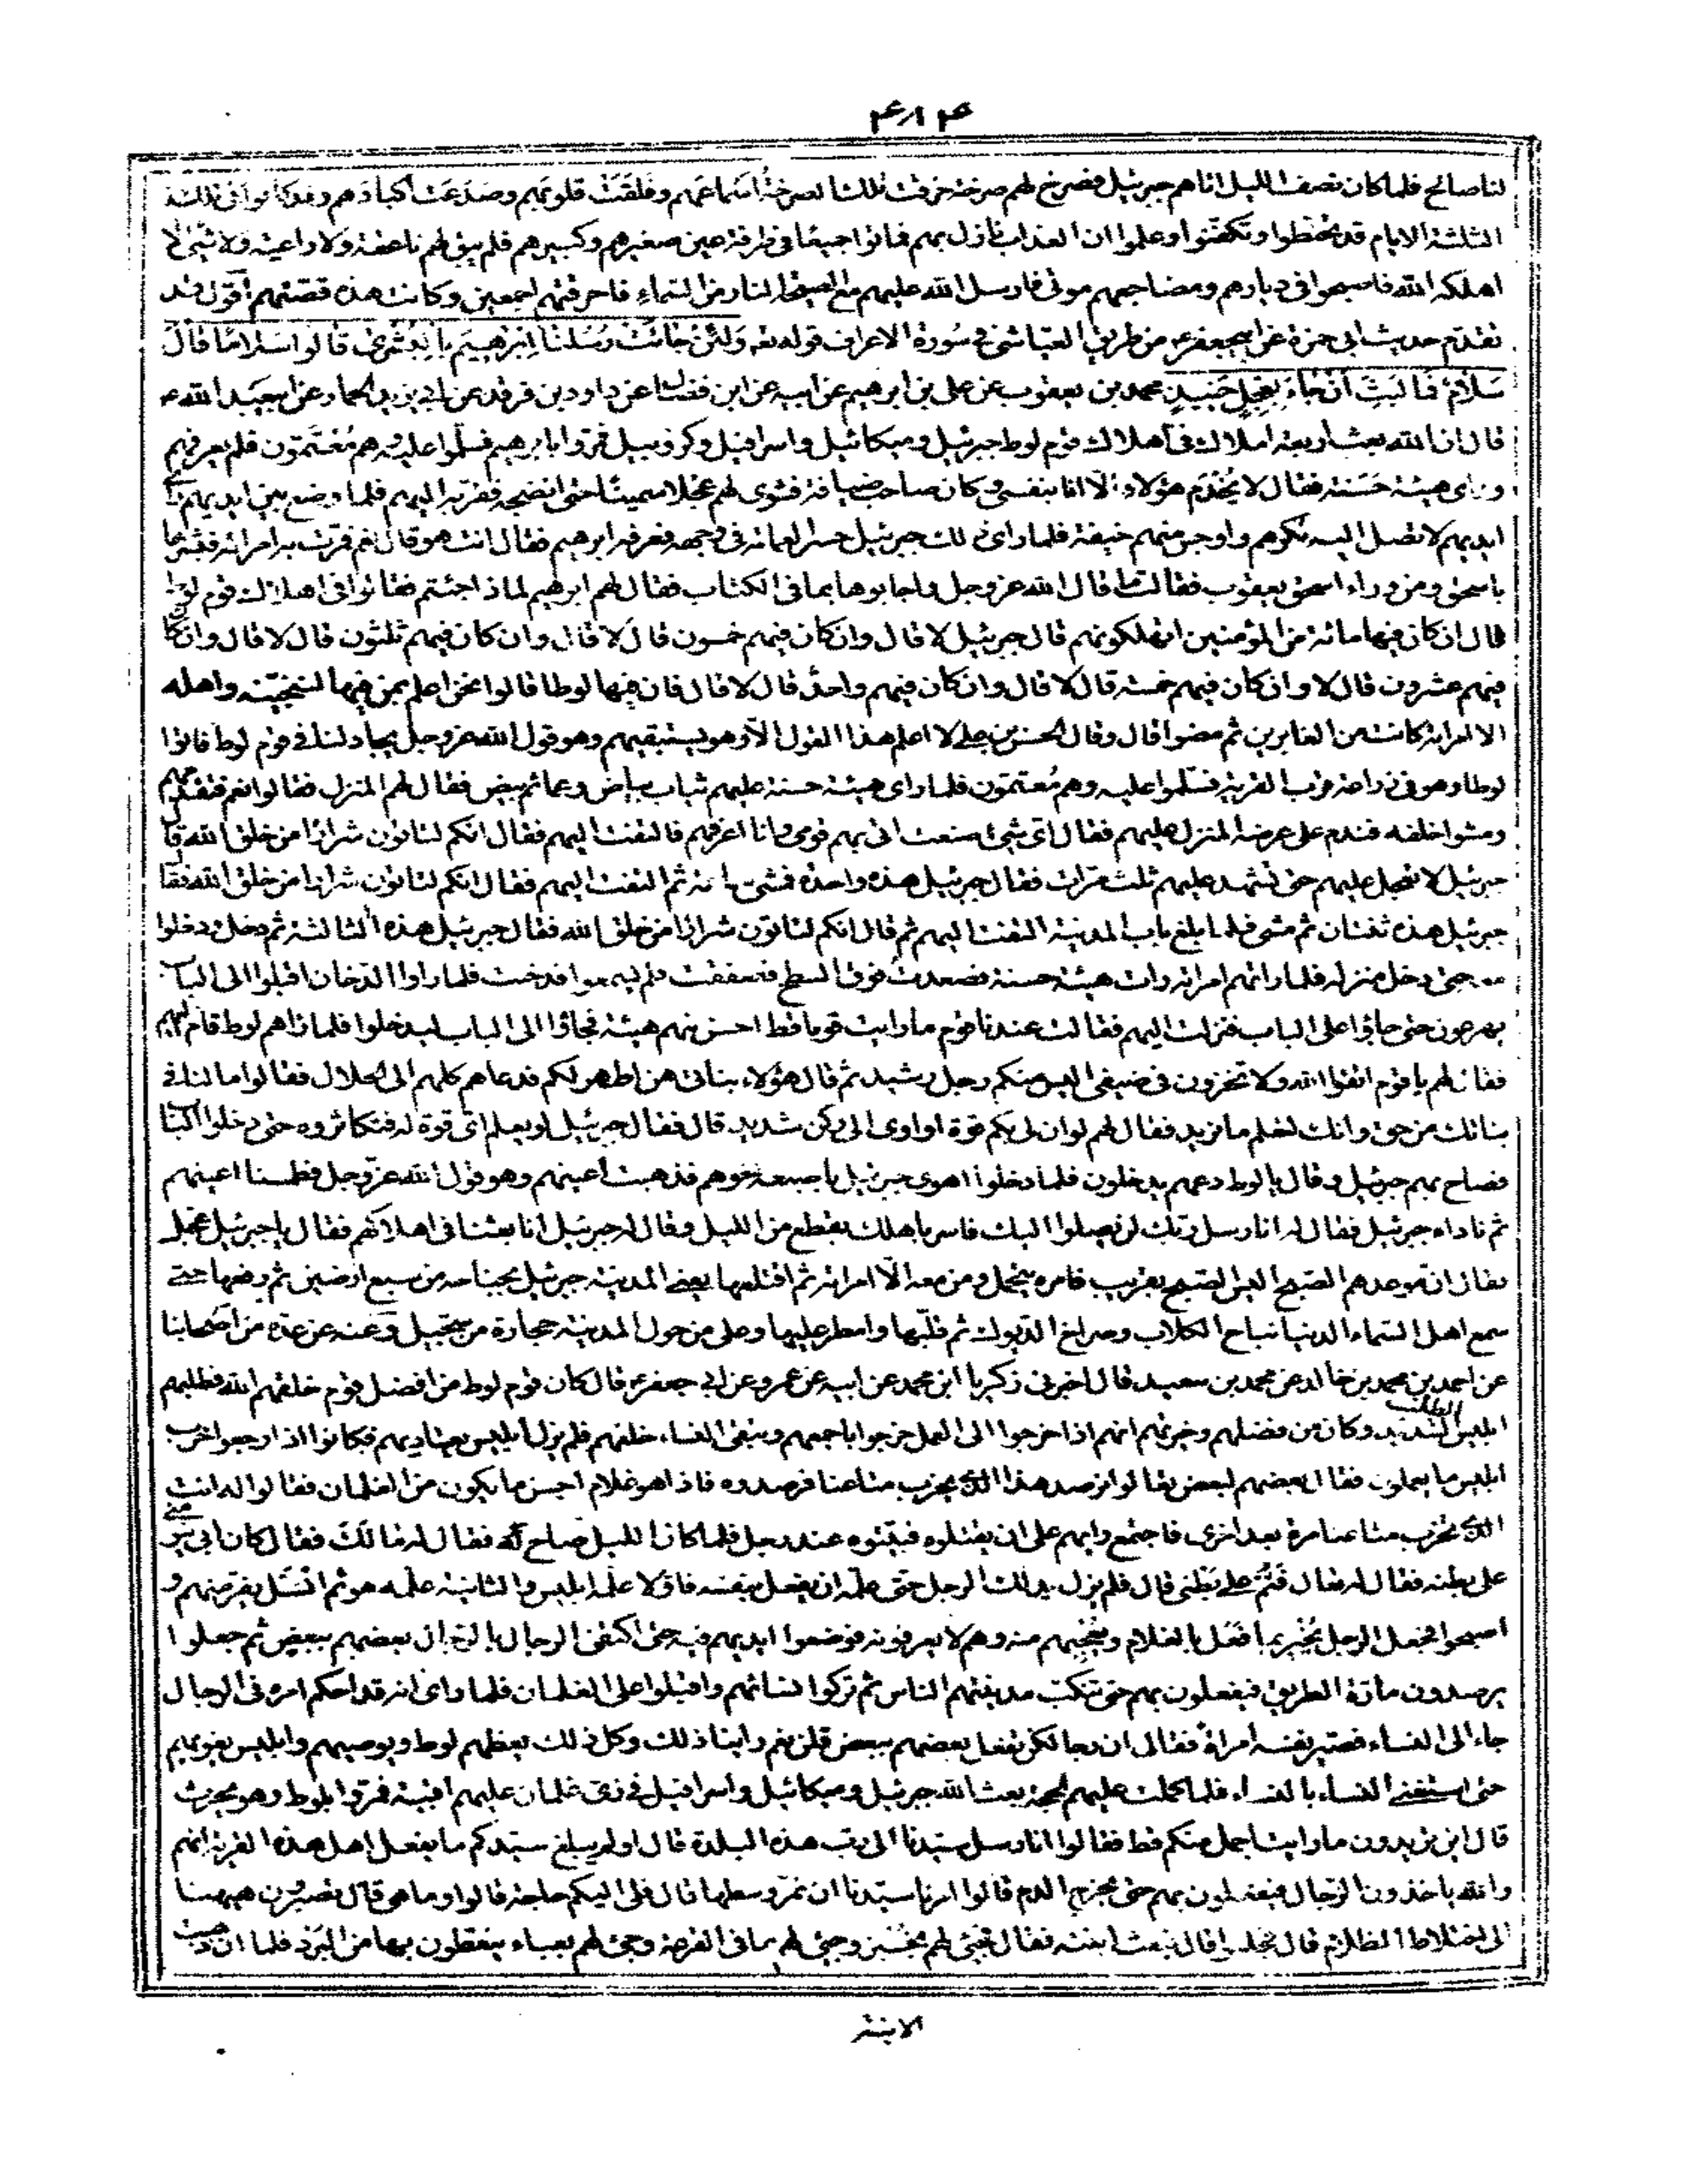 ۴۸۴
لنا صالح فلما كان نصف الليل اتاهم جبرئيل فصرخ لهم صرخة خرقت تلك الصرخة اسماعهم وفلقت قلوبهم وصدعت اكبادهم وقد كانوا فى تلك
الثلثة الايام قد تحنطوا وتكفنوا وعلموا ان العذاب نازل بهم فماتوا جميعا فى طرفة عين صغيرهم وكبيرهم فلم يبق لهم ناعقة ولا راعية ولا شئ الا
اهلكه الله فاصبحوا فى ديارهم ومضاجعهم موتى فارسل الله عليهم مع الصيحة النار من السماء فاحرقتهم اجمعين وكانت هذه قصتهم اقول قد
تقدم حديث ابى حمزة عن ابيجعفر ع من طريق العياشى فى سورة الاعراف قوله تعه ولقد جائت رسلنا ابرهيم بالبشرى قالوا سلاما قال
سلام فما لبث ان جاء بعجل حنيذ محمد بن يعقوب عن على بن ابرهيم عن ابيه عن ابن فضال عن داود بن فرقد عن ابى يزيد الحمار عن ابيعبد الله ع
قال ان الله بعث اربعة املاك فى اهلاك قوم لوط جبرئيل وميكائيل واسرافيل وكروبيل فمروا بابرهيم فسلموا عليه وهم معتمون فلم يعرفهم
وراى هيئة حسنة فقال لا يخدم هؤلاء الا انا بنفسى وكان صاحب ضيافة فشوى لهم عجلا سمينا حتى انضجه فقربه اليهم فلما وضع بين ايديهم راى
ايديهم لا تصل اليه نكرهم واوجس منهم خيفة فلما راى ذلك جبرئيل حسر العمامة فى وجهه فعرفه ابرهيم فقال انت هو قال نعم فمرت به امراته فبشرها
باسحق ومن وراء اسحق يعقوب فقالت ما قال الله عز وجل واجابوها بما فى الكتاب فقال لهم ابرهيم لماذا جئتم فقالوا فى اهلاك قوم لوط
قال ان كان فيها مائة من المؤمنين اتهلكونهم قال جبرئيل لا قال وان كان فيهم خمسون قال لا قال وان كان فيهم ثلثون قال لا قال وان كان
فيهم عشرون قال لا وان كان فيهم خمسة قال لا قال وان كان فيهم واحد قال لا قال فان فيها لوطا قالوا نحن اعلم بمن فيها لننجينه واهله
الا امراته كانت من الغابرين ثم مضوا قال وقال الحسن بن على لا اعلم هذا القول الا وهو يستبقيهم وهو قول الله عز وجل يجادلنا فى قوم لوط فاتوا
لوطا وهو فى زراعة قرب القرية فسلموا عليه وهم معتمون فلما راى هيئة حسنة عليهم ثياب بياض وعمائم بيض فقال لهم المنزل فقالوا نعم فتقدمهم
ومشوا خلفه فندم على عرضه المنزل عليهم فقال اى شئ صنعت اتى بهم قومى وانا اعرفهم فالتفت اليهم فقال انكم لتاتون شرارا من خلق الله قال
جبرئيل لا نعجل عليهم حتى تشهد عليهم ثلث مرات فقال جبرئيل هذه واحدة فمشى ساعة ثم التفت اليهم فقال انكم لتاتون شرارا من خلق الله فقال
جبرئيل هذه ثنتان ثم مشى فلما بلغ باب المدينة التفت اليهم ثم قال انكم لتاتون شرارا من خلق الله فقال جبرئيل هذه الثالثة ثم دخل ودخلوا
معه حتى دخل منزله فلما راتهم امراته رات هيئة حسنة فصعدت فوق السطح فصفقت فلم يسمعوا فدخنت فلما راوا الدخان اقبلوا الى الباب
يهرعون حتى جاؤا على الباب فنزلت اليهم فقالت عندنا قوم ما رايت قوما قط احسن منهم هيئة فجاؤا الى الباب ليدخلوا فلما راهم لوط قام اليهم
فقال لهم يا قوم اتقوا الله ولا تخزون فى ضيفى اليس منكم رجل رشيد ثم قال هؤلاء بناتى هن اطهر لكم فدعاهم كلهم الى الحلال فقالوا ما لنا فى
بناتك من حق وانك لتعلم ما نريد فقال لهم لو ان لى بكم قوة او اوى الى ركن شديد قال فقال جبرئيل لو يعلم اى قوة له فتكاثروه حتى دخلوا الباب
فصاح بهم جبرئيل وقال يا لوط دعهم يدخلون فلما دخلوا اهوى جبرئيل باصبعه نحوهم فذهبت اعينهم وهو قول الله عز وجل فطمسنا اعينهم
ثم ناداه جبرئيل فقال له انا رسل ربك لن يصلوا اليك فاسر باهلك بقطع من الليل وقال له جبرئيل انا بعثنا فى اهلاكهم فقال يا جبرئيل عجل
فقال ان موعدهم الصبح اليس الصبح بقريب فامره يتحمل ومن معه الا امراته ثم اقتلعها يعنى المدينة جبرئيل بجناحه من سبع ارضين ثم رفعها حتى
سمع اهل السماء الدنيا نباح الكلاب وصراخ الديوك ثم قلبها وامطر عليها وعلى من حول المدينة حجارة من سجيل وعنه عن عدة من اصحابنا
عن احمد بن محمد بن خالد عن محمد بن سعيد قال اخبرنى زكريا ابن محمد عن ابيه عن عمرو عن ابى جعفر ع قال كان قوم لوط من افضل قوم خلقهم الله فطلبهم
ابليس الطلب الشديد وكان من فضلهم وخيرتهم انهم اذا خرجوا الى العمل خرجوا باجمعهم وتبقى النساء خلفهم فلم يزل ابليس يعتاديهم فكانوا اذا رجعوا خرب
ابليس ما يعملون فقال بعضهم لبعض تعالوا نرصد هذا الذى يخرب متاعنا فرصدوه فاذا هو غلام احسن ما يكون من الغلمان فقالوا له انت
الذى تخرب متاعنا مرة بعد اخرى فاجتمع رايهم على ان يقتلوه فبيتوه عند رجل فلما كان الليل صاح له فقال له ما لك فقال كان ابى ينومنى
على بطنه فقال له تعال فنم على بطنى قال فلم يزل يدلك الرجل حتى علمه ان يفعل بنفسه فاولا علمه ابليس والثانية علمه هو ثم انسل ففر منهم و
اصبحوا فجعل الرجل يخبر بما فعل بالغلام ويعجبهم منه وهم لا يعرفونه فوضعوا ايديهم فيه حتى اكتفى الرجال بالرجال بعضهم ببعض ثم جعلوا
يرصدون مارة الطريق فيفعلون بهم حتى تنكب مدينتهم الناس ثم تركوا نسائهم واقبلوا على الغلمان فلما راى انه قد احكم امره فى الرجال
جاء الى النساء فصير نفسه امراة فقال ان رجالكن يفعل بعضهم ببعض قلن نعم راينا ذلك وكل ذلك يعظهم لوط ويوصيهم وابليس يغويهم
حتى استغنى النساء بالنساء فلما كملت عليهم الحجة بعث الله جبرئيل وميكائيل واسرافيل فى زى غلمان عليهم اقبية فمروا بلوط وهو يحرث
قال اين تريدون ما رايت اجمل منكم قط فقالوا انا رسل سيدنا الى رب هذه البلدة قال اولم يبلغ سيدكم ما يفعل اهل هذه القرية انهم
والله ياخذون الرجال فيفعلون بهم حتى يخرج الدم قالوا امرنا سيدنا ان نمر وسطها قال فلى اليكم حاجة قالوا وما هى قال تصبرون ههنا
الى اختلاط الظلام قال فجلسوا قال فبعث ابنته فقال جيئى لهم بخبز وجيئى لهم بماء فى القرعة وجيئى لهم بعباء يتغطون بها من البرد فلما ان ذهبت
الابنة